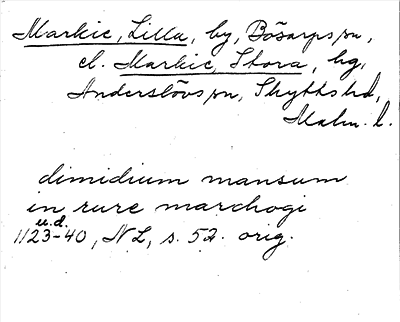 Markie, Lilla, by, Bösarps sn,
el. Markie, Stora, by,
Anderslövs sn, Skytts hd,
Malm. l.
dimidium mansum
in rure marchogi
u.d.
1123-40, NL, s. 52. orig.